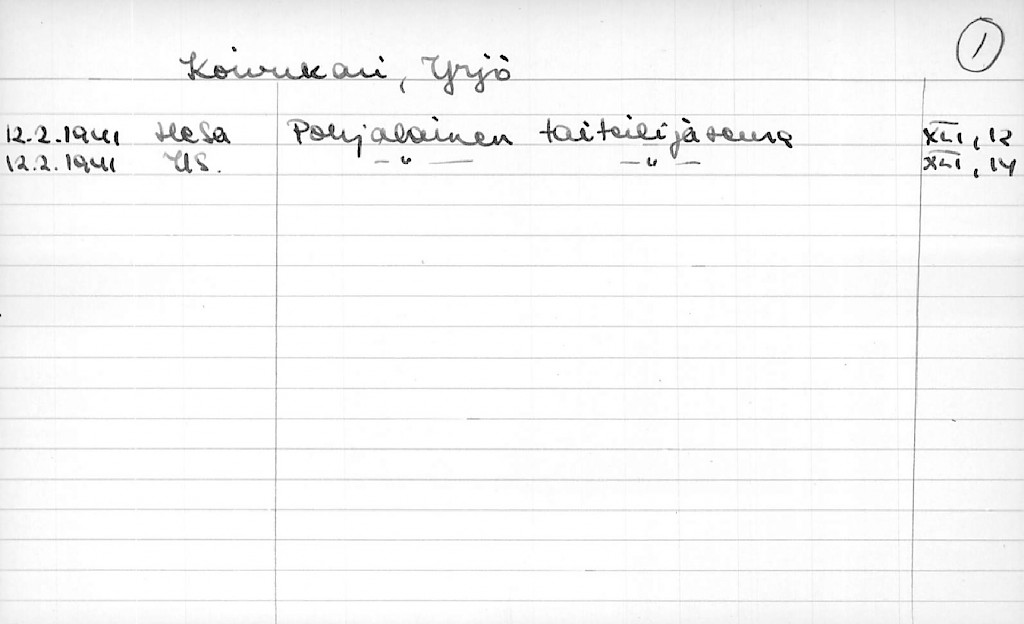 1
Koivukari, Yrjö
12.2.1941 HeSa Pohjalainen taiteilijaseura XLI, 12
12.2.1941 US. —"— —"— XLI, 14